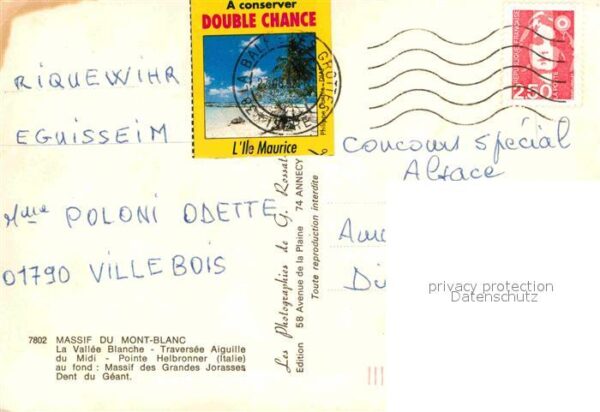 A conserver
DOUBLE CHANCE
L'Ile Maurice
REPUBLIQUE FRANÇAISE
2,50
LA POSTE
RIQUEWIHR
EGUISSEIM
Mme POLONI ODETTE
01790 VILLEBOIS
Concours Spécial
Alsace
privacy protection
Datenschutz
Les Photographies de G. Rossat
Edition 58 Avenue de la Plaine 74 ANNECY
Toute reproduction interdite
7802 MASSIF DU MONT-BLANC
La Vallée Blanche - Traversée Aiguille
du Midi - Pointe Helbronner (Italie)
au fond : Massif des Grandes Jorasses
Dent du Géant.